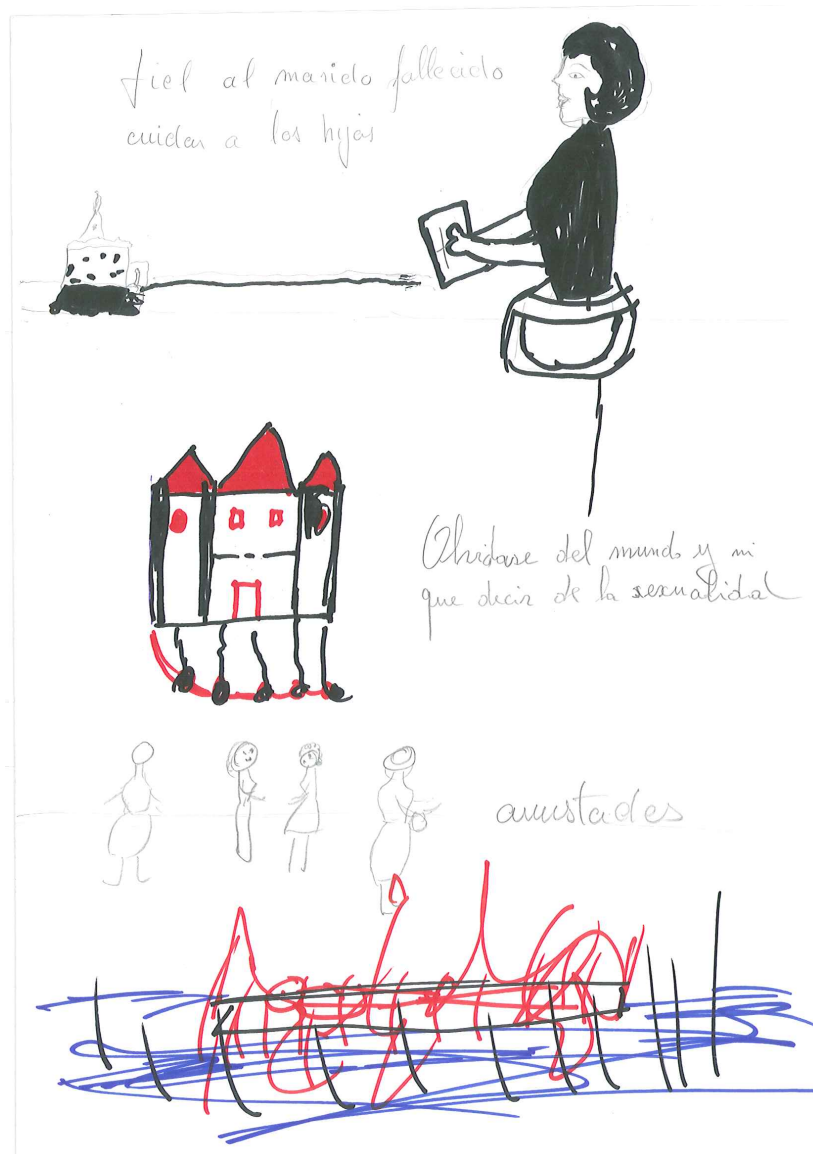 fiel al marido fallecido
cuidar a los hijos
Olvidase del mundo y ni
que decir de la sexualidal
amistades